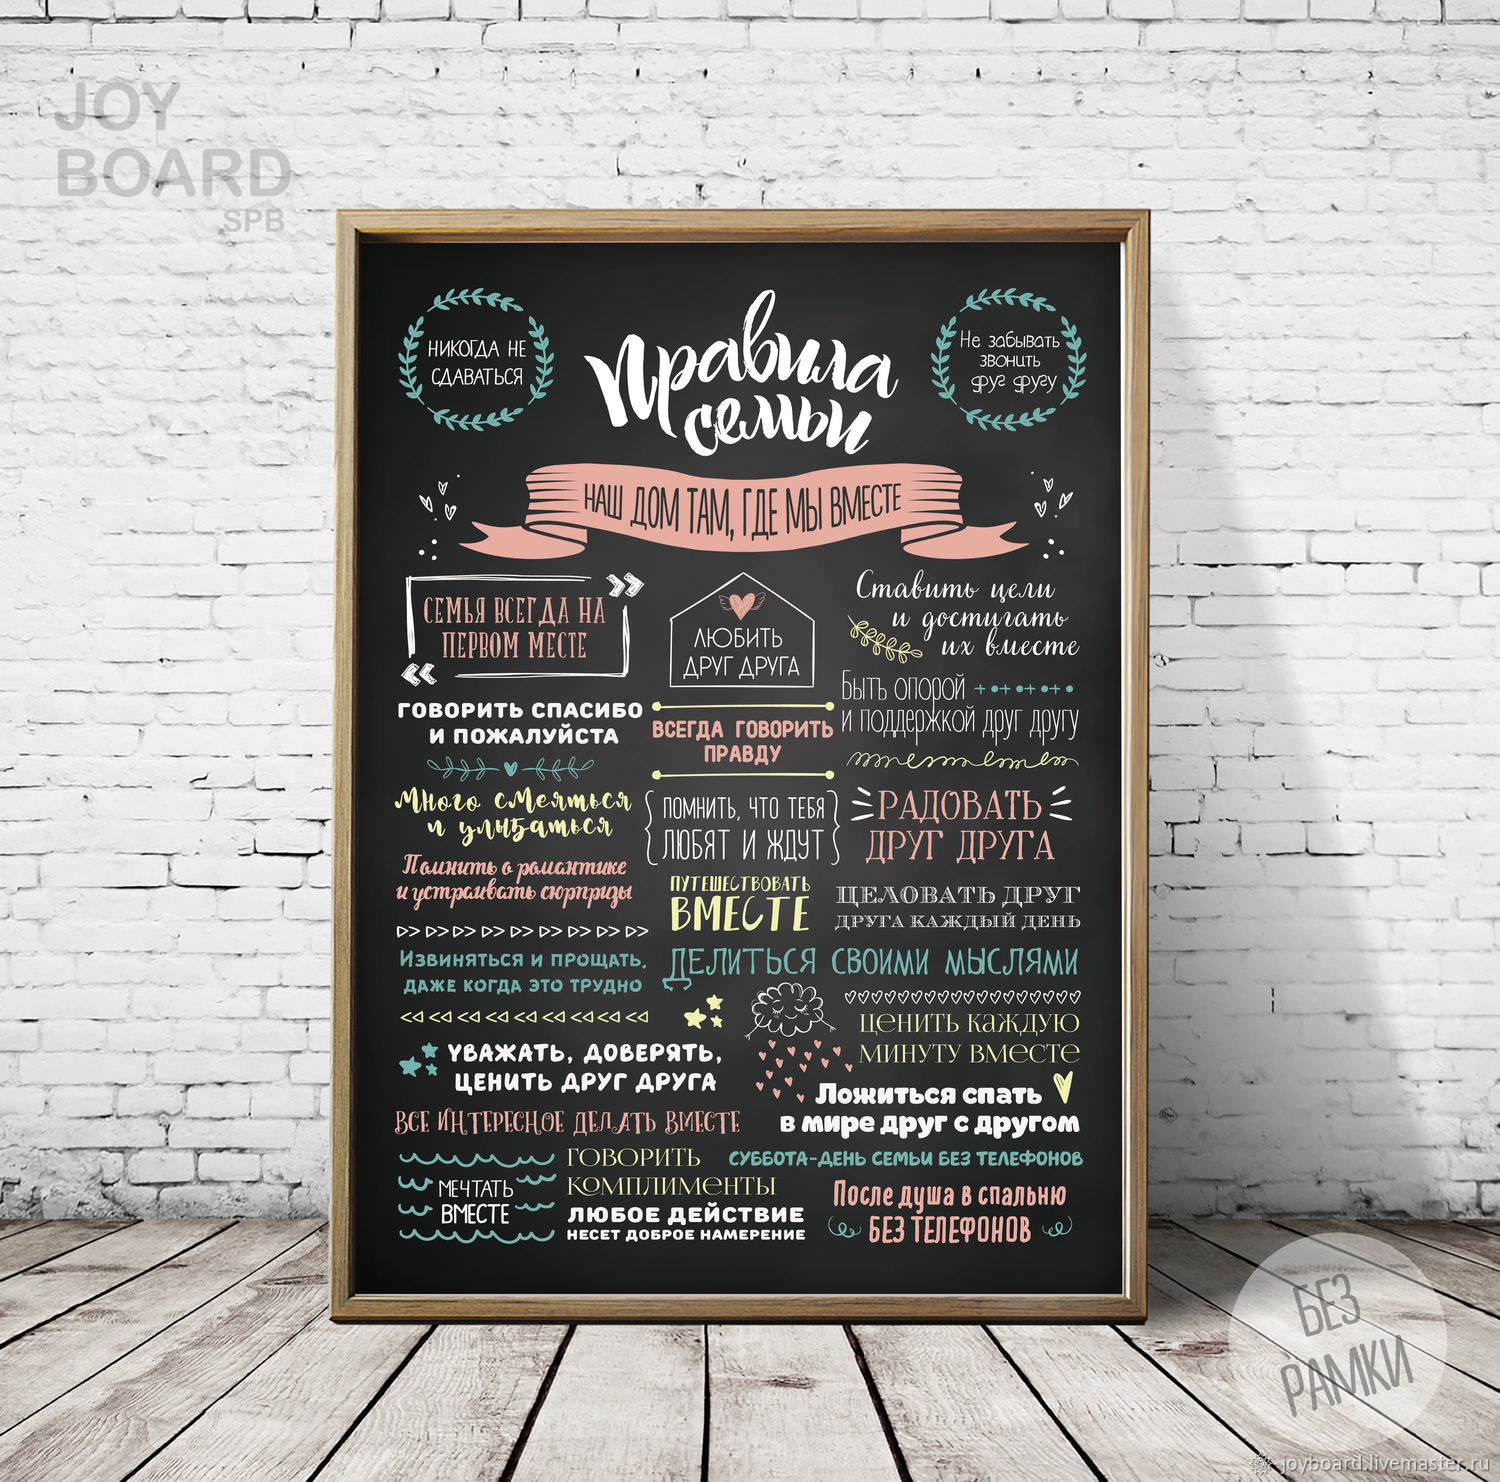 JOY
BOARD
SPB
НИКОГДА НЕ
СДАВАТЬСЯ
Правила
семьи
Не забывать
звонить
друг другу
НАШ ДОМ ТАМ, ГДЕ МЫ ВМЕСТЕ
СЕМЬЯ ВСЕГДА НА
ПЕРВОМ МЕСТЕ
ЛЮБИТЬ
ДРУГ ДРУГА
Ставить цели
и достигать
их вместе
ГОВОРИТЬ СПАСИБО
И ПОЖАЛУЙСТА
ВСЕГДА ГОВОРИТЬ
ПРАВДУ
Быть опорой
и поддержкой друг другу
Много смеяться
и улыбаться
ПОМНИТЬ, ЧТО ТЕБЯ
ЛЮБЯТ И ЖДУТ
РАДОВАТЬ
ДРУГ ДРУГА
Помнить о романтике
и устраивать сюрпризы
ПУТЕШЕСТВОВАТЬ
ВМЕСТЕ
ЦЕЛОВАТЬ ДРУГ
ДРУГА КАЖДЫЙ ДЕНЬ
Извиняться и прощать,
даже когда это трудно
ДЕЛИТЬСЯ СВОИМИ МЫСЛЯМИ
УВАЖАТЬ, ДОВЕРЯТЬ,
ЦЕНИТЬ ДРУГ ДРУГА
ЦЕНИТЬ КАЖДУЮ
МИНУТУ ВМЕСТЕ
Ложиться спать
в мире друг с другом
ВСЕ ИНТЕРЕСНОЕ ДЕЛАТЬ ВМЕСТЕ
МЕЧТАТЬ
ВМЕСТЕ
ГОВОРИТЬ
КОМПЛИМЕНТЫ
ЛЮБОЕ ДЕЙСТВИЕ
НЕСЕТ ДОБРОЕ НАМЕРЕНИЕ
СУББОТА-ДЕНЬ СЕМЬИ БЕЗ ТЕЛЕФОНОВ
После душа в спальню
БЕЗ ТЕЛЕФОНОВ
БЕЗ
РАМКИ
joyboard.livemaster.ru